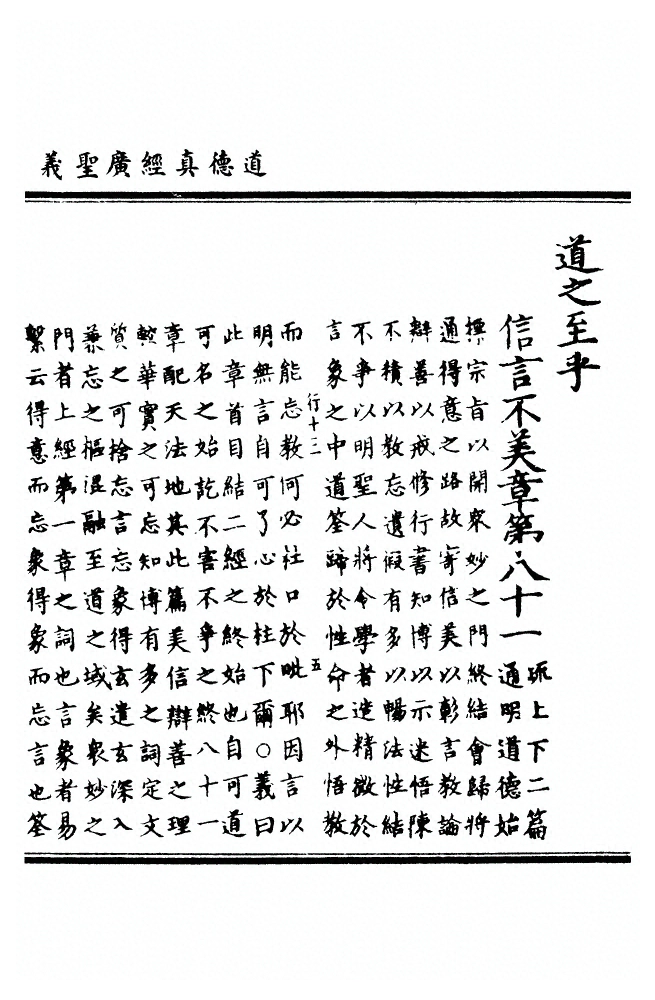 道德真經廣聖義
道之至乎
信言不美章第八十一
疏上下二篇
通明道德始
標宗旨以開衆妙之門終結會歸將
通得意之路故寄信美以彰言教論
辯善以戒修行書知博以示迷悟陳
不積以教忘遺假有多以暢法性結
不爭以明聖人將令學者造精微於
言象之中道筌蹄於性命之外悟教
行十三 五
而能忘教何必社口於毗耶因言以
明無言自可了心於柱下爾○義曰
此章首目結二經之終始也自可道
可名之始訖不害不爭之終八十一
章配天法地其此篇美信辯善之理
敷華實之可忘知博有多之詞定文
質之可捨忘言忘象得玄遺玄深入
兼忘之樞混融至道之域矣衆妙之
門者上經第一章之詞也言象者易
繫云得意而忘象得象而忘言也筌